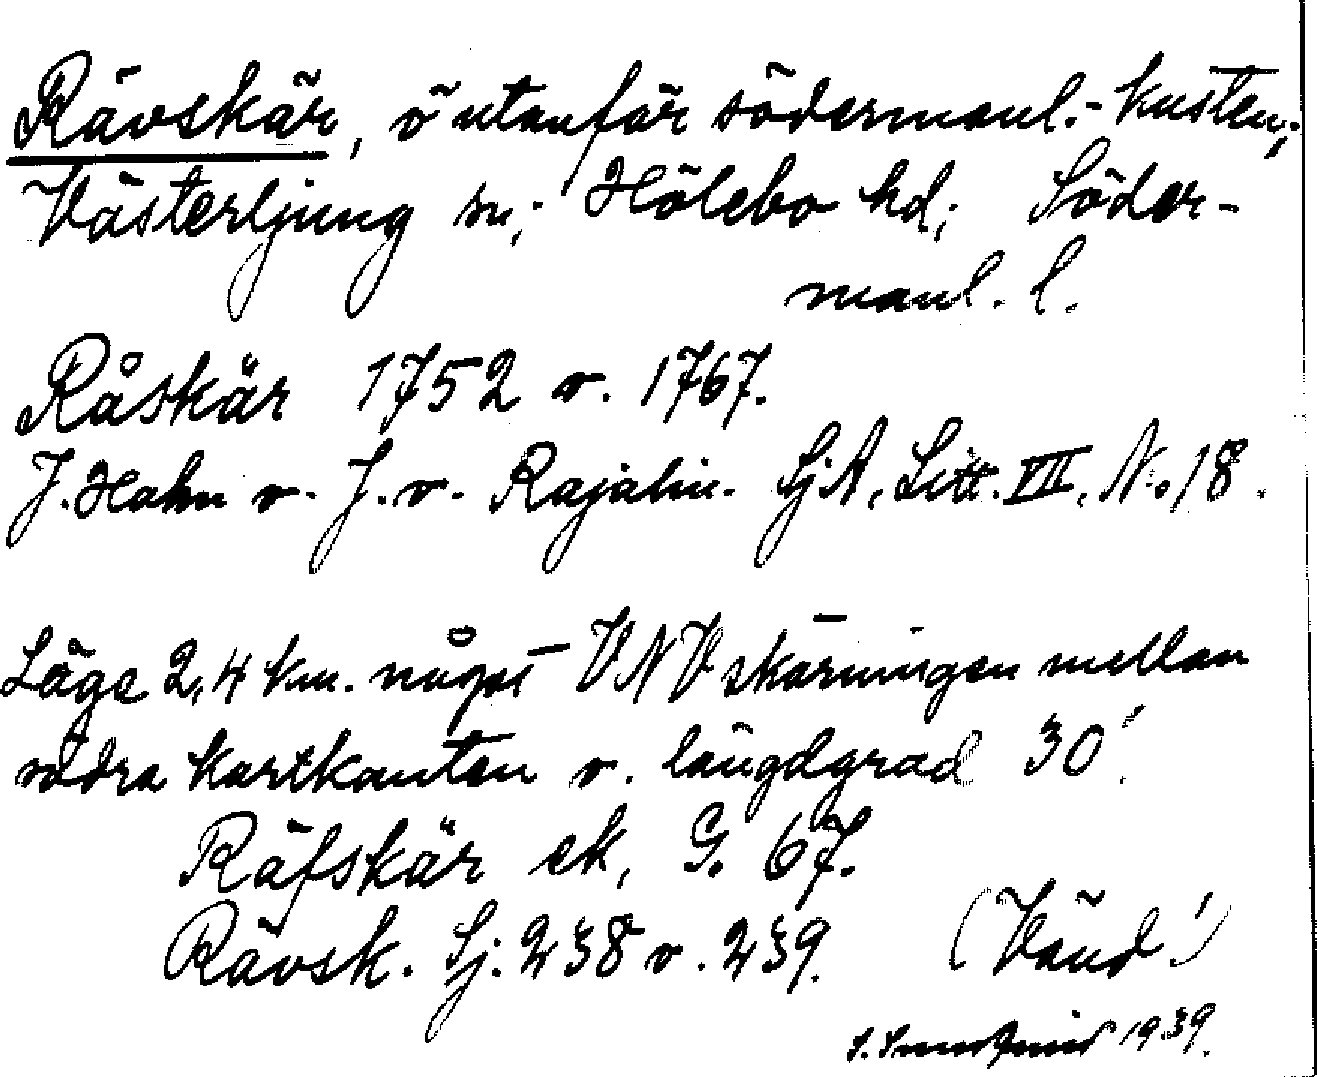 Rävskär, ö utanför södermanl.-kusten;
Västerljung sn; Hölebo hd; Söder-
manl. l.
Råskär 1752 o. 1767.
J. Hahn o. J. v. Rajalin. SjA, Litt. VIII, No 18.
Läge 2,4 km. något VNV skärningen mellan
södra kartkanten o. längdgrad 30'.
Räfskär ek, G. 67.
Rävsk. Sj. 238 o. 239. (Vänd!)
S. 1939.